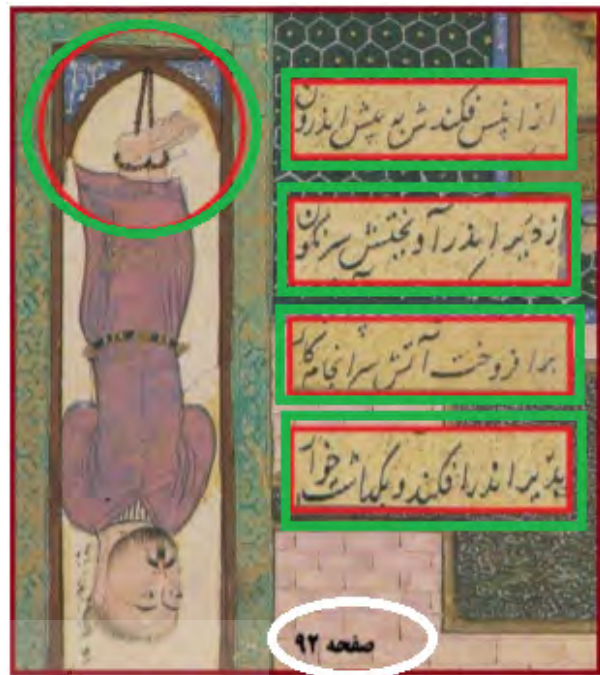 از ان پس فکندش به پیش اندرون
ز دَیر اندر آویختش سرنگون
برافروخت آتش سرانجام کار
بدیر اندر افکند و بگذاشت خوار
صفحه ۹۲